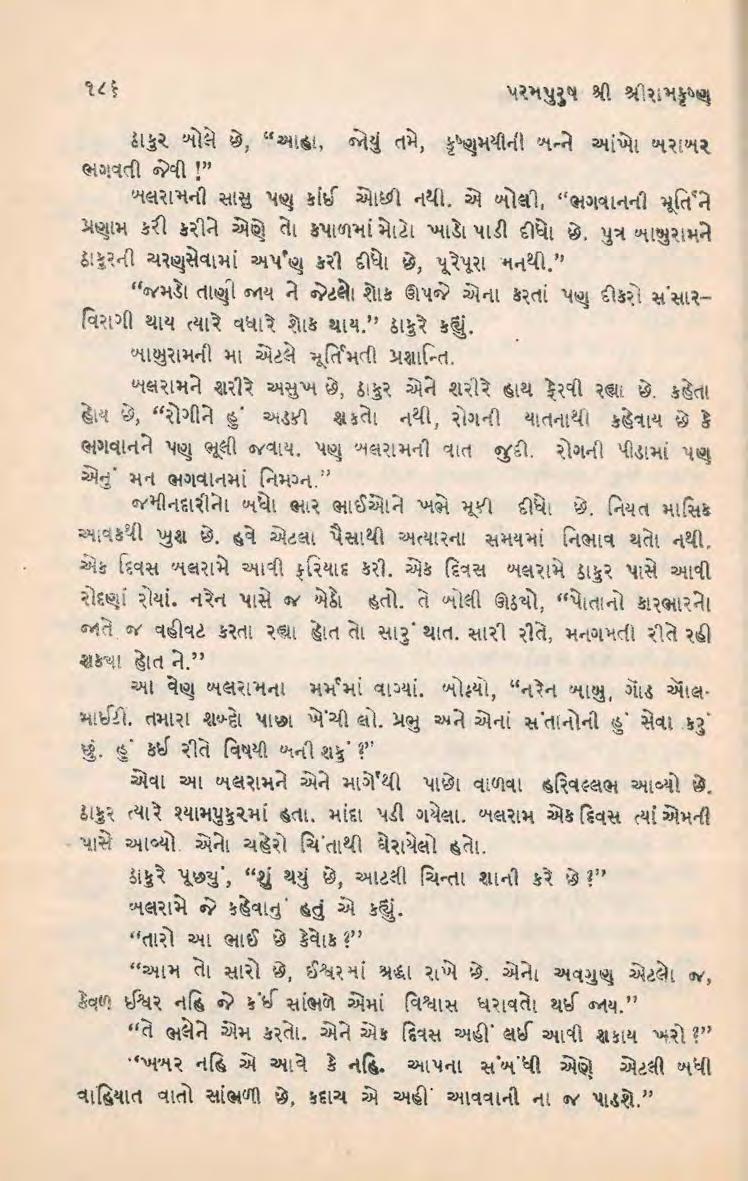 ૧૮૬ પરમપુરુષ શ્રી શ્રીરામકૃષ્ણ
ઠાકુર બોલે છે, “આહા, જોયું તમે, કૃષ્ણમયીની બન્ને આંખો બરાબર
ભગવતી જેવી !”
બલરામની સાસુ પણ કાંઈ ઓછી નથી. એ બોલી, “ભગવાનની મૂર્તિને
પ્રણામ કરી કરીને એણે તો કપાળમાં મોટો ખાડો પાડી દીધો છે. પુત્ર બાબુરામને
ઠાકુરની ચરણસેવામાં અર્પણ કરી દીધો છે, પૂરેપૂરા મનથી.”
“જમડો તાણી જાય ને જેટલો શોક ઊપજે એના કરતાં પણ દીકરો સંસાર–
વિરાગી થાય ત્યારે વધારે શોક થાય.” ઠાકુરે કહ્યું.
બાબુરામની મા એટલે મૂર્તિમતી પ્રશાન્તિ.
બલરામને શરીરે અસુખ છે, ઠાકુર એને શરીરે હાથ ફેરવી રહ્યા છે. કહેતા
હોય છે, “રોગીને હું અડકી શકતો નથી, રોગની યાતનાથી કહેવાય છે કે
ભગવાનને પણ ભૂલી જવાય. પણ બલરામની વાત જુદી. રોગની પીડામાં પણ
એનું મન ભગવાનમાં નિમગ્ન.”
જમીનદારીનો બધો ભાર ભાઈઓને ખભે મૂકી દીધો છે. નિયત માસિક
આવકથી ખુશ છે. હવે એટલા પૈસાથી અત્યારના સમયમાં નિભાવ થતો નથી.
એક દિવસ બલરામે આવી ફરિયાદ કરી. એક દિવસ બલરામે ઠાકુર પાસે આવી
રોદણાં રોયાં. નરેન પાસે જ બેઠો હતો. તે બોલી ઊઠયો, “પોતાનો કારભારનો
જાતે જ વહીવટ કરતા રહ્યા હોત તો સારું થાત. સારી રીતે, મનગમતી રીતે રહી
શકયા હોત ને.”
આ વેણ બલરામના મર્મમાં વાગ્યાં. બોલ્યો, “નરેન બાબુ, ગૉડ ઑલ-
માઈટી. તમારા શબ્દો પાછા ખેંચી લો. પ્રભુ અને એનાં સંતાનોની હું સેવા કરું
છું. હું કઈ રીતે વિષયી બની શકું ?”
એવા આ બલરામને એને માર્ગેથી પાછો વાળવા હરિવલ્લભ આવ્યો છે.
ઠાકુર ત્યારે શ્યામપુકુરમાં હતા. માંદા પડી ગયેલા. બલરામ એક દિવસ ત્યાં એમની
પાસે આવ્યો. એનો ચહેરો ચિંતાથી ઘેરાયેલો હતો.
ઠાકુરે પૂછયું, “શું થયું છે, આટલી ચિન્તા શાની કરે છે ?”
બલરામે જે કહેવાનું હતું એ કહ્યું.
“તારો આ ભાઈ છે કેવોક ?”
“આમ તો સારો છે, ઈશ્વરમાં શ્રદ્ધા રાખે છે. એનો અવગુણ એટલો જ,
કેવળ ઈશ્વર નહિ જે કંઈ સાંભળે એમાં વિશ્વાસ ધરાવતો થઈ જાય.”
“તે ભલેને એમ કરતો. એને એક દિવસ અહીં લઈ આવી શકાય ખરો ?”
“ખબર નહિ એ આવે કે નહિ. આપના સંબંધી એણે એટલી બધી
વાહિયાત વાતો સાંભળી છે, કદાચ એ અહીં આવવાની ના જ પાડશે.”